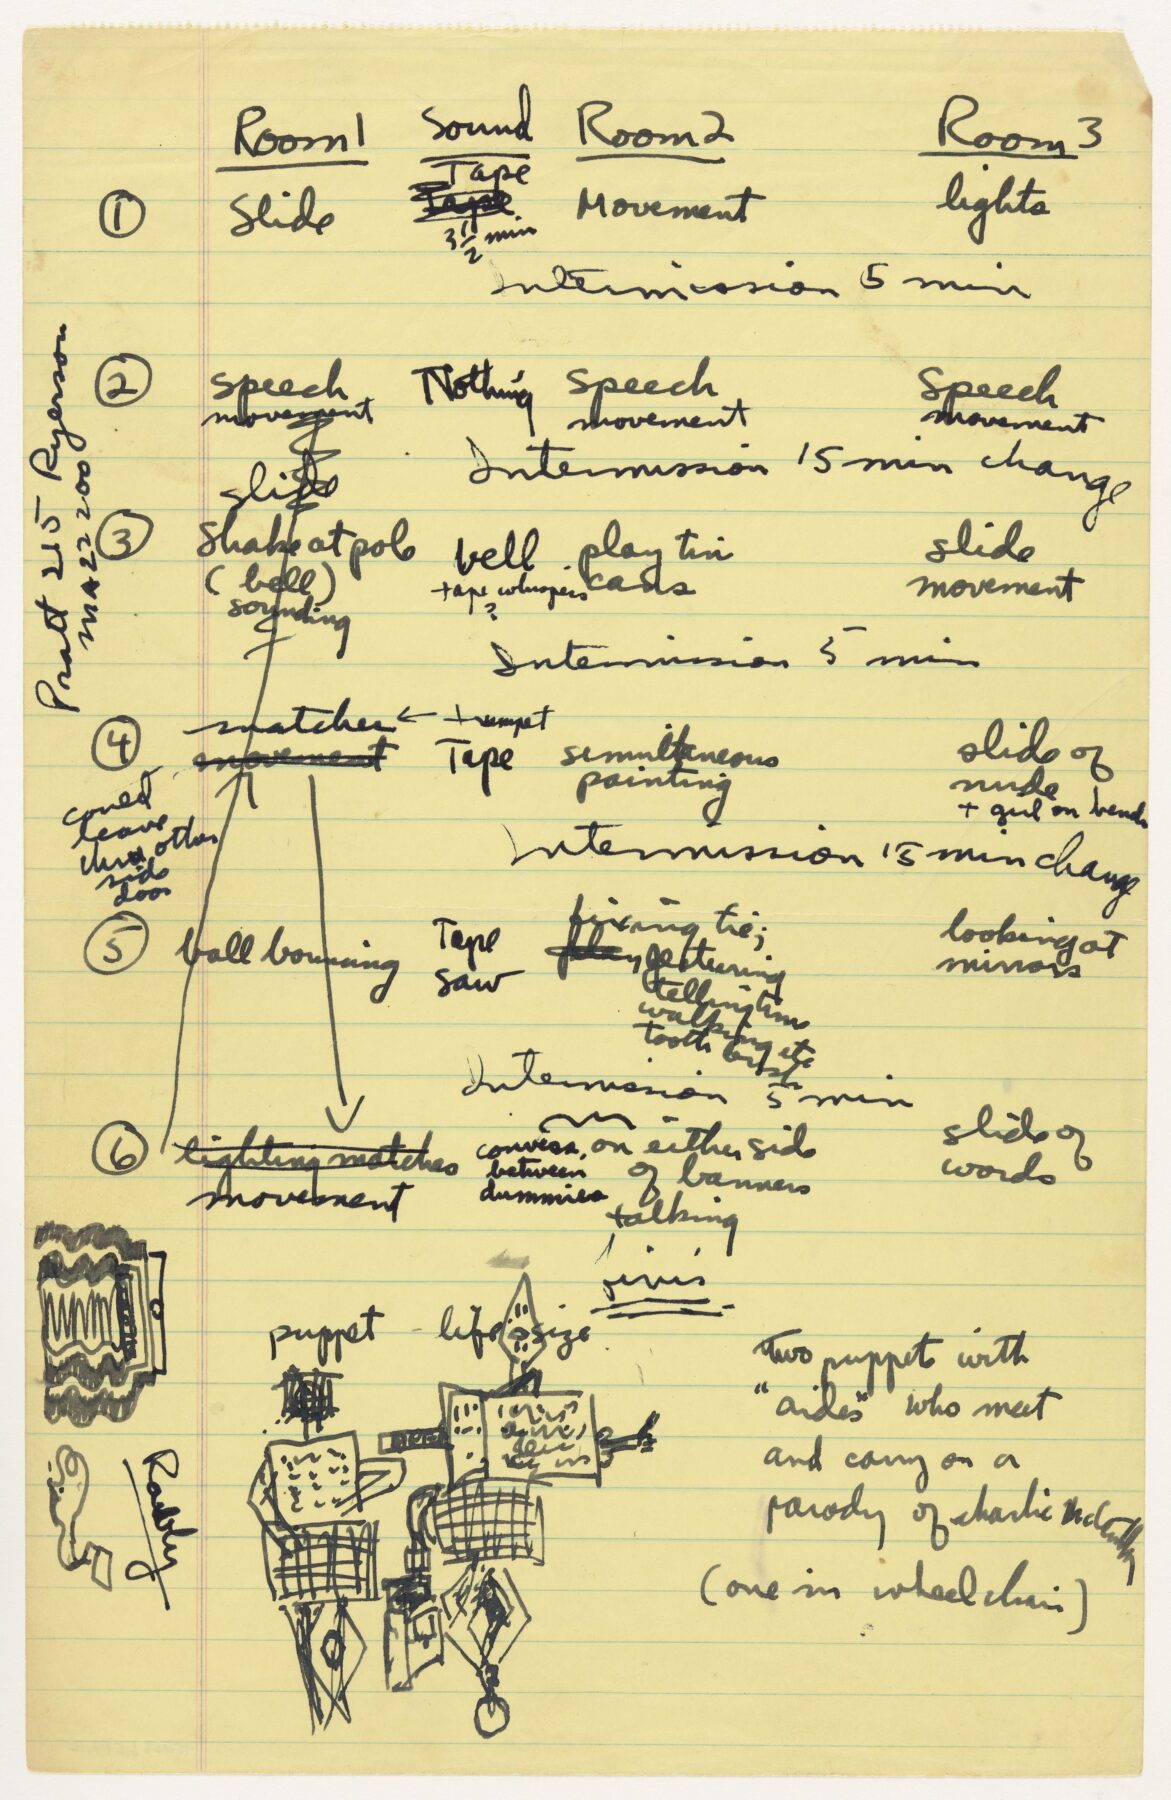 Room 1 Sound Room 2 Room 3
Tape
① Slide Tape Movement lights
3 1/2 min
Intermission 5 min
② speech Nothing speech speech
movement movement movement
Intermission 15 min change
slide
③ Shake at pole bell play tin slide
(bell) + tape whispers cans movement
sounding ?
Intermission 5 min
matches ← trumpet
④ movement Tape simultaneous slide of
painting nude
+ girl on bench
Intermission 15 min change
leave
thru other
side
door
fixing tie;
⑤ ball bouncing Tape gesturing looking at
saw telling time mirrors
walking etc
tooth brush
Intermission 5 min
⑥ lighting matches convers. on either side slide of
movement between of banners words
dummies talking
finis
puppet - life size
two puppets with
"aides" who meet
and carry on a
parody of charlie
(one in wheel chair)
Pratt 215 Ryerson
MA 22200